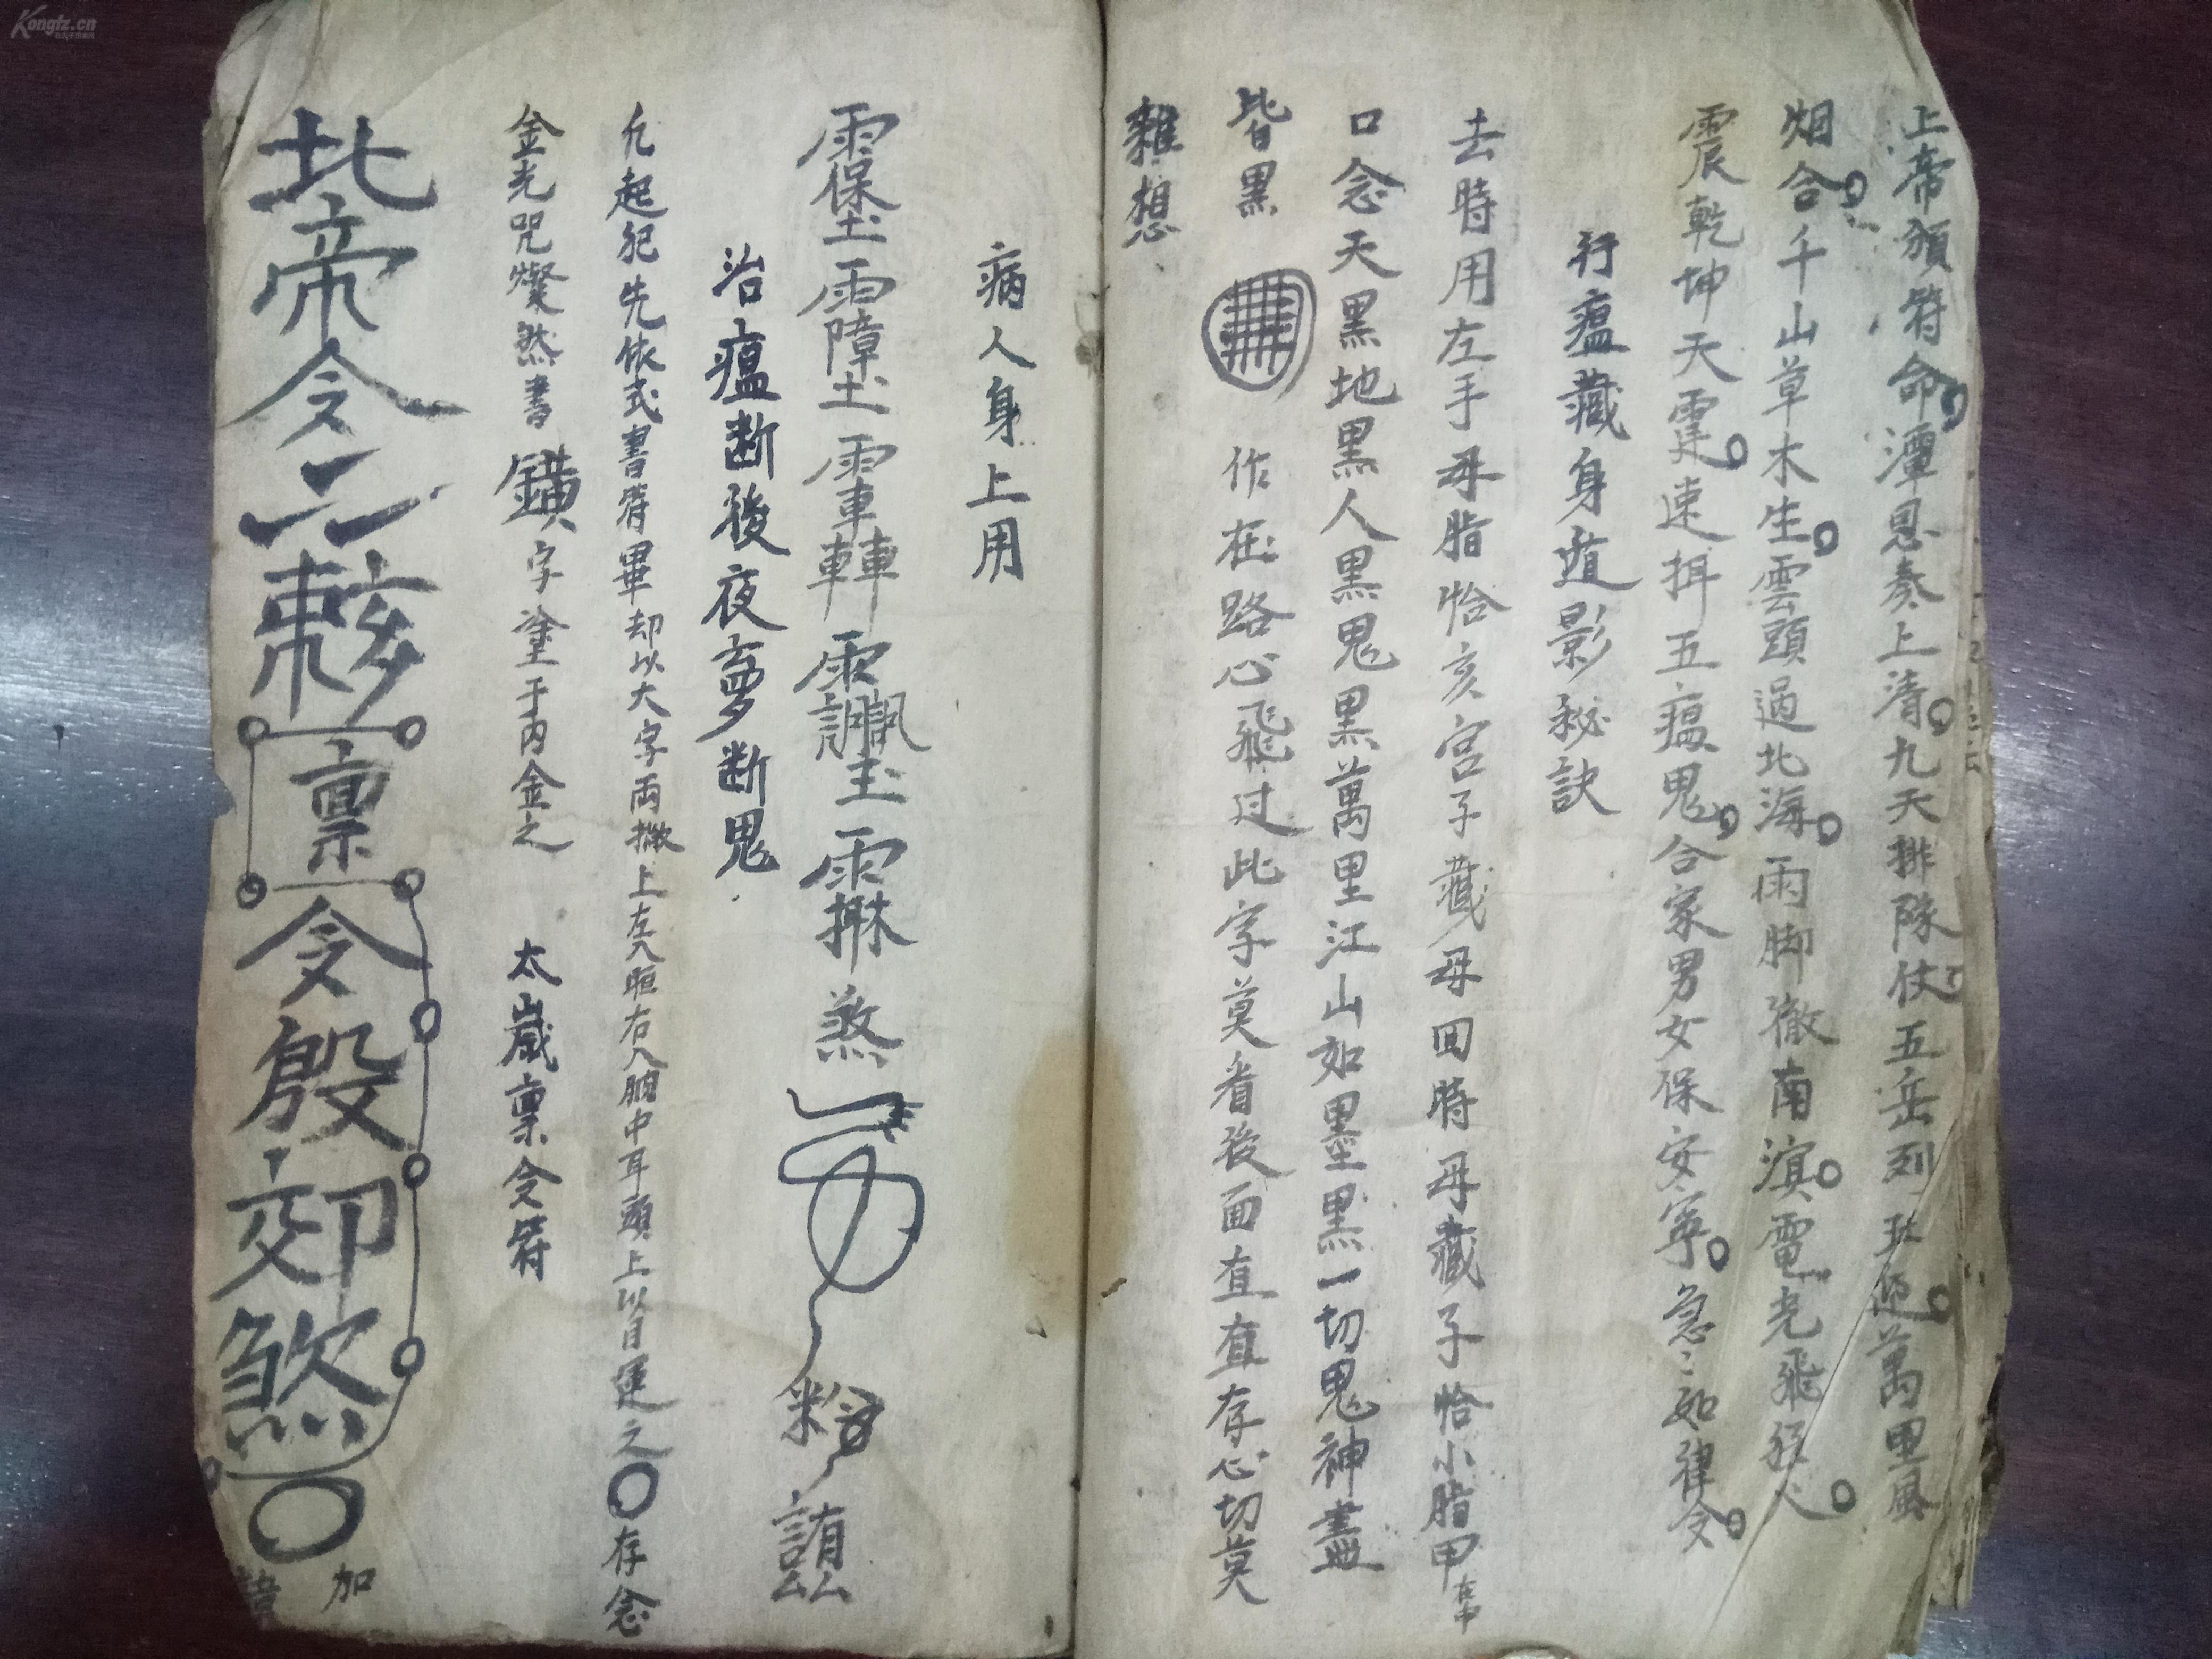 上帝頒符命潭恩奏上清九天排隊仗五岳列萬里風
烟合千山草木生雲頭過北海雨脚徹南溟電光飛
震乾坤天霆速五瘟鬼合家男女保安寧急〻如律令
行瘟藏身遁影秘訣
去時用左手母脂恰亥宮子藏母回時母藏子恰小脂甲
口念天黑地黑人黑鬼黑萬里江山如墨黑一切鬼神盡
皆黑 作在路心飛过此字莫看後面直直存心切莫
雜想
病人身上用
煞
治瘟断後夜夢断鬼
凡起犯先依式書符畢却以大字両撇上左入右入中耳頭上以目運之〇存念
金光咒燦然書鐄字塗于内金之 太歲稟令符
北帝令
稟
令殷郊煞
加
Kongfz.cn